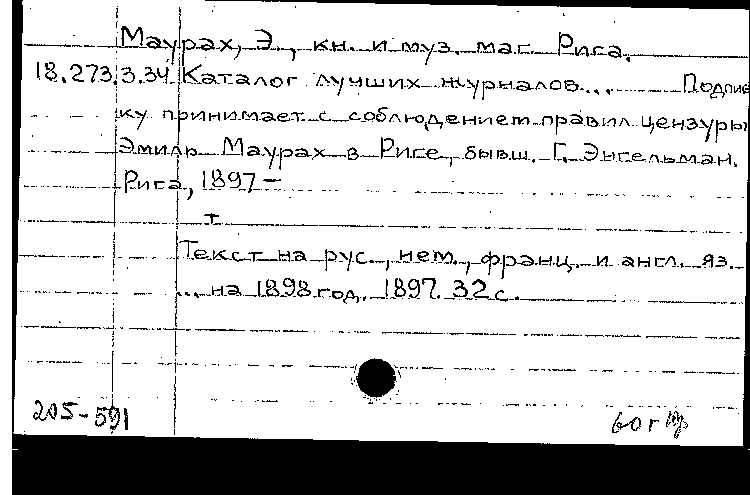 Маурах, Э., кн. и муз. маг. Рига.
18.273.3.34 Каталог лучших журналов... Подпис
ку принимает с соблюдением правил цензуры
Эмиль Маурах в Риге, бывш. Г. Энгельман.
Рига, 1897 –
т
Текст на рус., нем., франц. и англ. яз.
... на 1898 год. 1897. 32 с.
205-591 60г